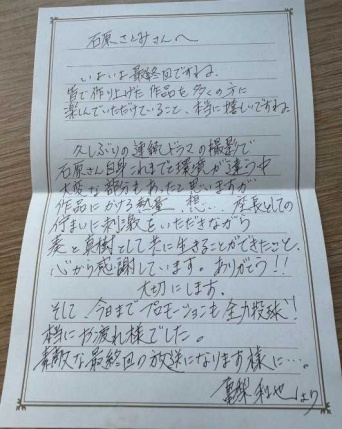 石原さとみさんへ
いよいよ最終回ですね。
皆で作り上げた作品を多くの方に
楽しんでいただけていること、本当に嬉しいですね
久しぶりの連続ドラマの撮影で
石原さん自身これまでと環境が違う中
大変な部分もあったと思いますが
作品にかける熱量、想い… 座長としての
佇まいに刺激をいただきながら
葵と真樹として共に生きることができたこと、
心から感謝しています。ありがとう!!
大切にします。
そして、今日までプロモーションも全力投球!
本当にお疲れ様でした。
素敵な最終回の放送になります様に…。
亀梨和也より